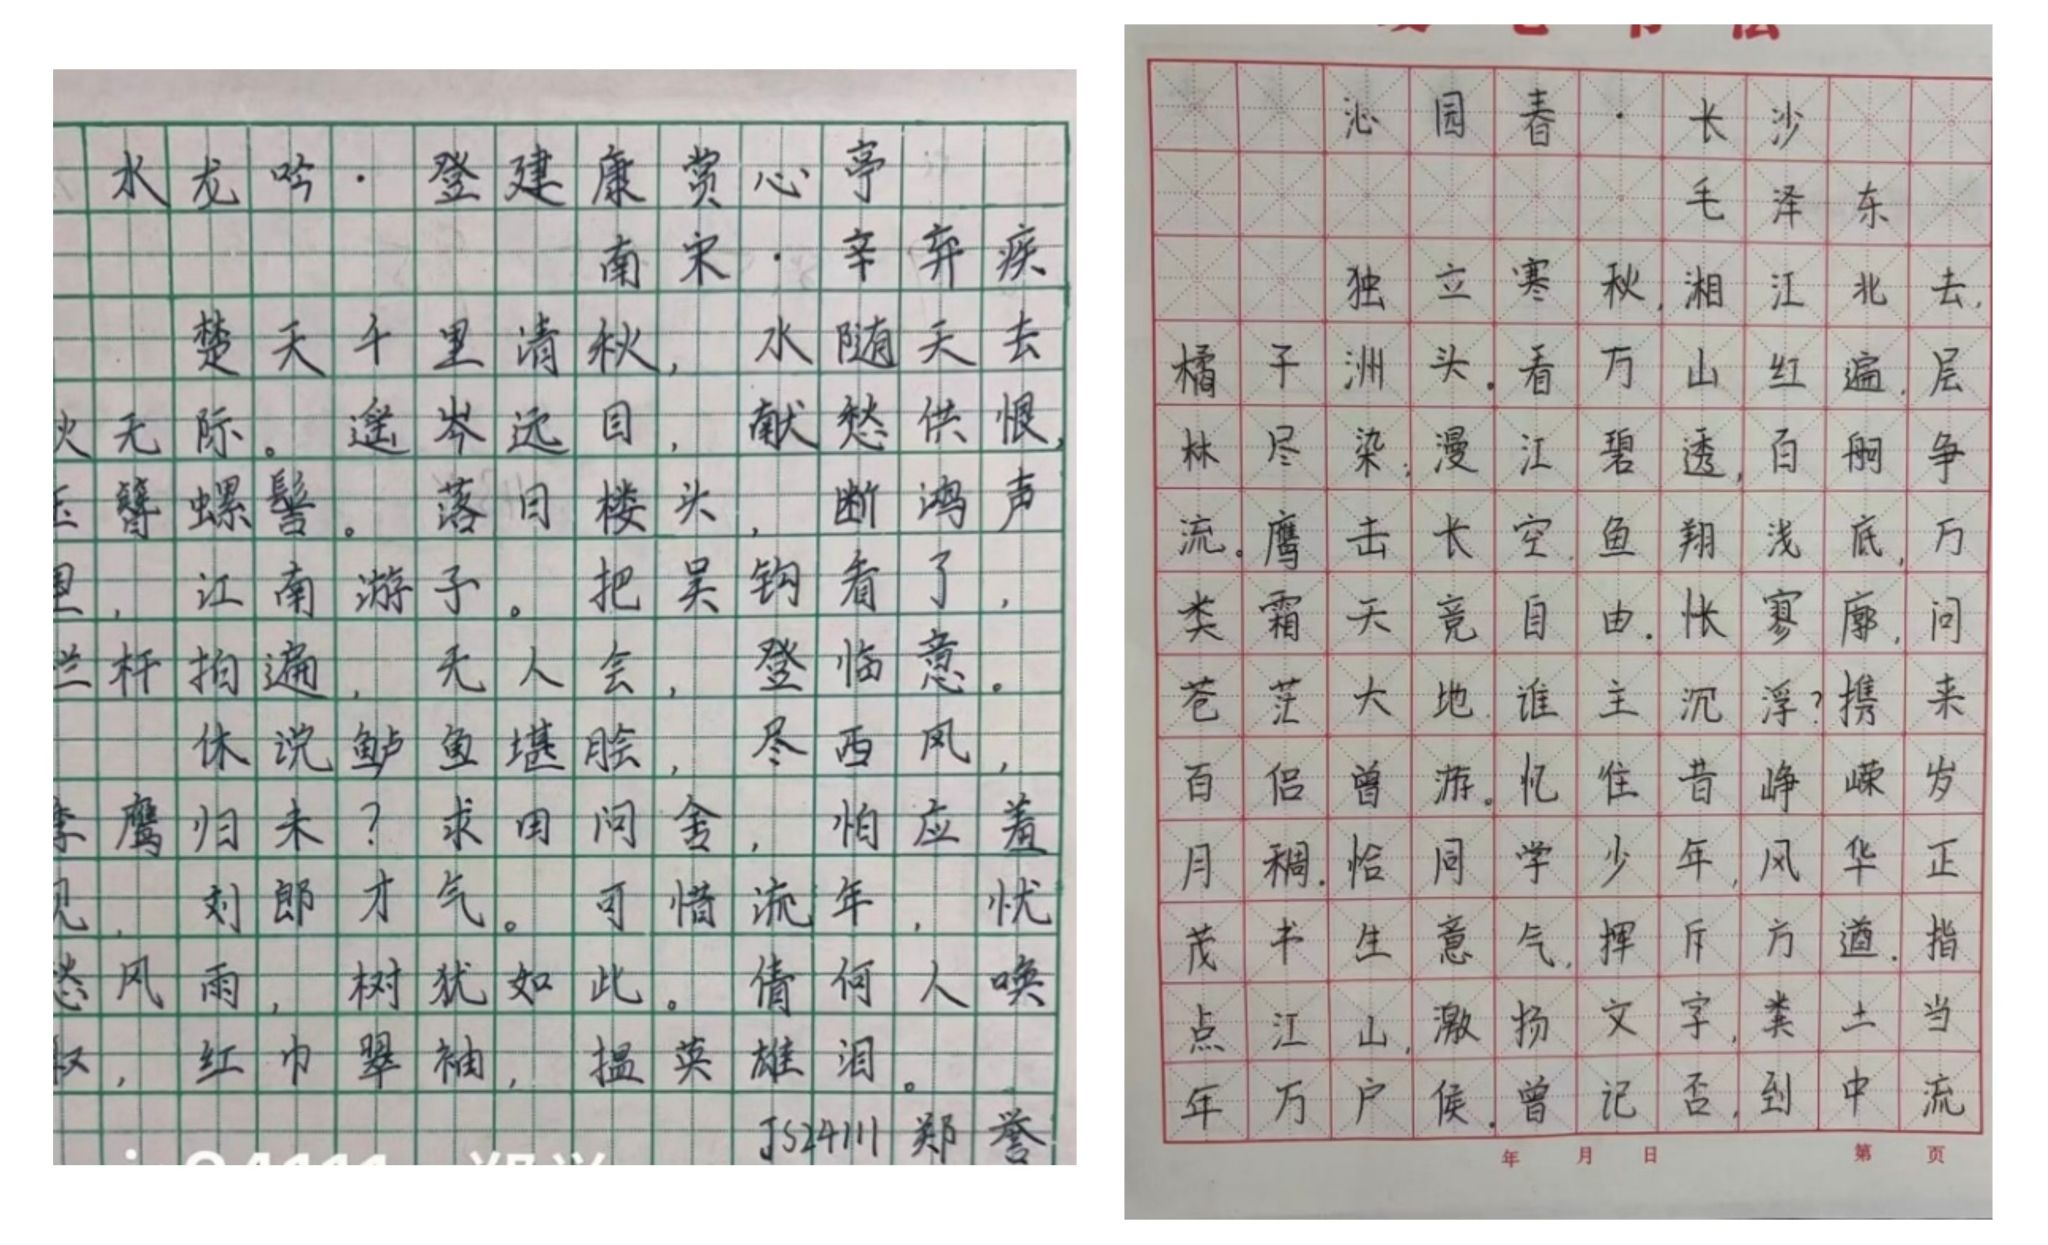 水龙吟·登建康赏心亭
南宋·辛弃疾
楚天千里清秋，水随天去
无际。遥岑远目，献愁供恨，
簪螺髻。落日楼头，断鸿声
，江南游子。把吴钩看了，
杆拍遍，无人会，登临意。
休说鲈鱼堪脍，尽西风，
鹰归未？求田问舍，怕应羞
，刘郎才气。可惜流年，忧
愁风雨，树犹如此。倩何人唤
，红巾翠袖，揾英雄泪。
JS24111 郑誉
沁园春·长沙
毛泽东
独立寒秋，湘江北去，
橘子洲头。看万山红遍，层
林尽染；漫江碧透，百舸争
流。鹰击长空，鱼翔浅底，万
类霜天竞自由。怅寥廓，问
苍茫大地，谁主沉浮？携来
百侣曾游。忆往昔峥嵘岁
月稠。恰同学少年，风华正
茂书生意气，挥斥方遒。指
点江山，激扬文字，粪土当
年万户侯。曾记否，到中流
年 月 日 第 页